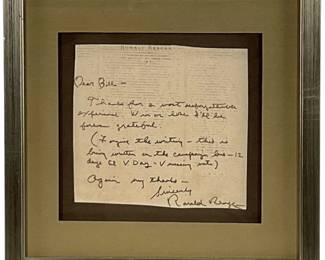 RONALD REAGAN
Dear Bill –
Thanks for a most unforgettable
experience. Win or lose I'll be
forever grateful.
(Forgive the writing – this is
being written on the campaign bus – 12
days til V Day – V meaning vote)
Again my thanks –
Sincerely
Ronald Reagan